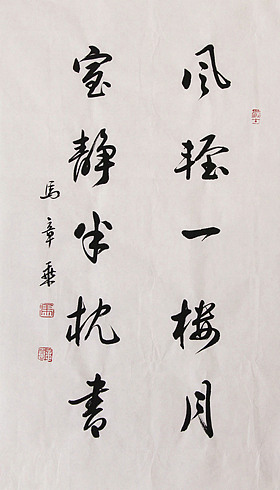 风轻一楼月
室静半枕书
马章乘